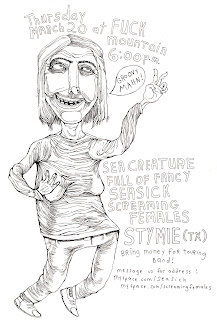 Thursday
March 20 at FUCK
mountain
6:00pm
GROOVY
MAHN!
SEA CREATURE
FULL OF FANCY
SEASICK
SCREAMING
FEMALES
STYMIE (TX)
Bring money for touring
Band!
message us for address!
myspace.com/seasick
myspace.com/screamingfemales